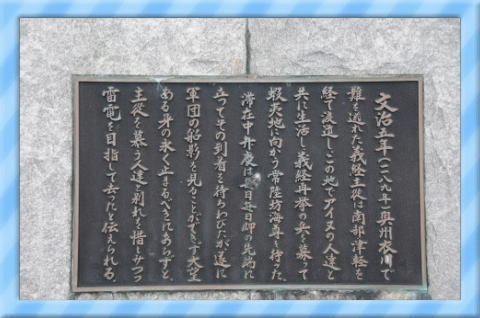 文治五年(一一八九年)奥州衣川で
難を逃れた義経主従は南部津軽を
経て渡道しこの地でアイヌの人達と
共に生活し、義経再挙の兵を募って
蝦夷地に向かう常陸坊海尊を待った。
滞在中弁慶は毎日毎日岬の先端に
立って舟の到着を待ちわびたが遂に
軍団の船影を見ることができず大望
ある身の永く止まるべきにあらずと、
主従を慕う人達と別れを惜しみつつ
雷電を目指して去ったと伝えられる。